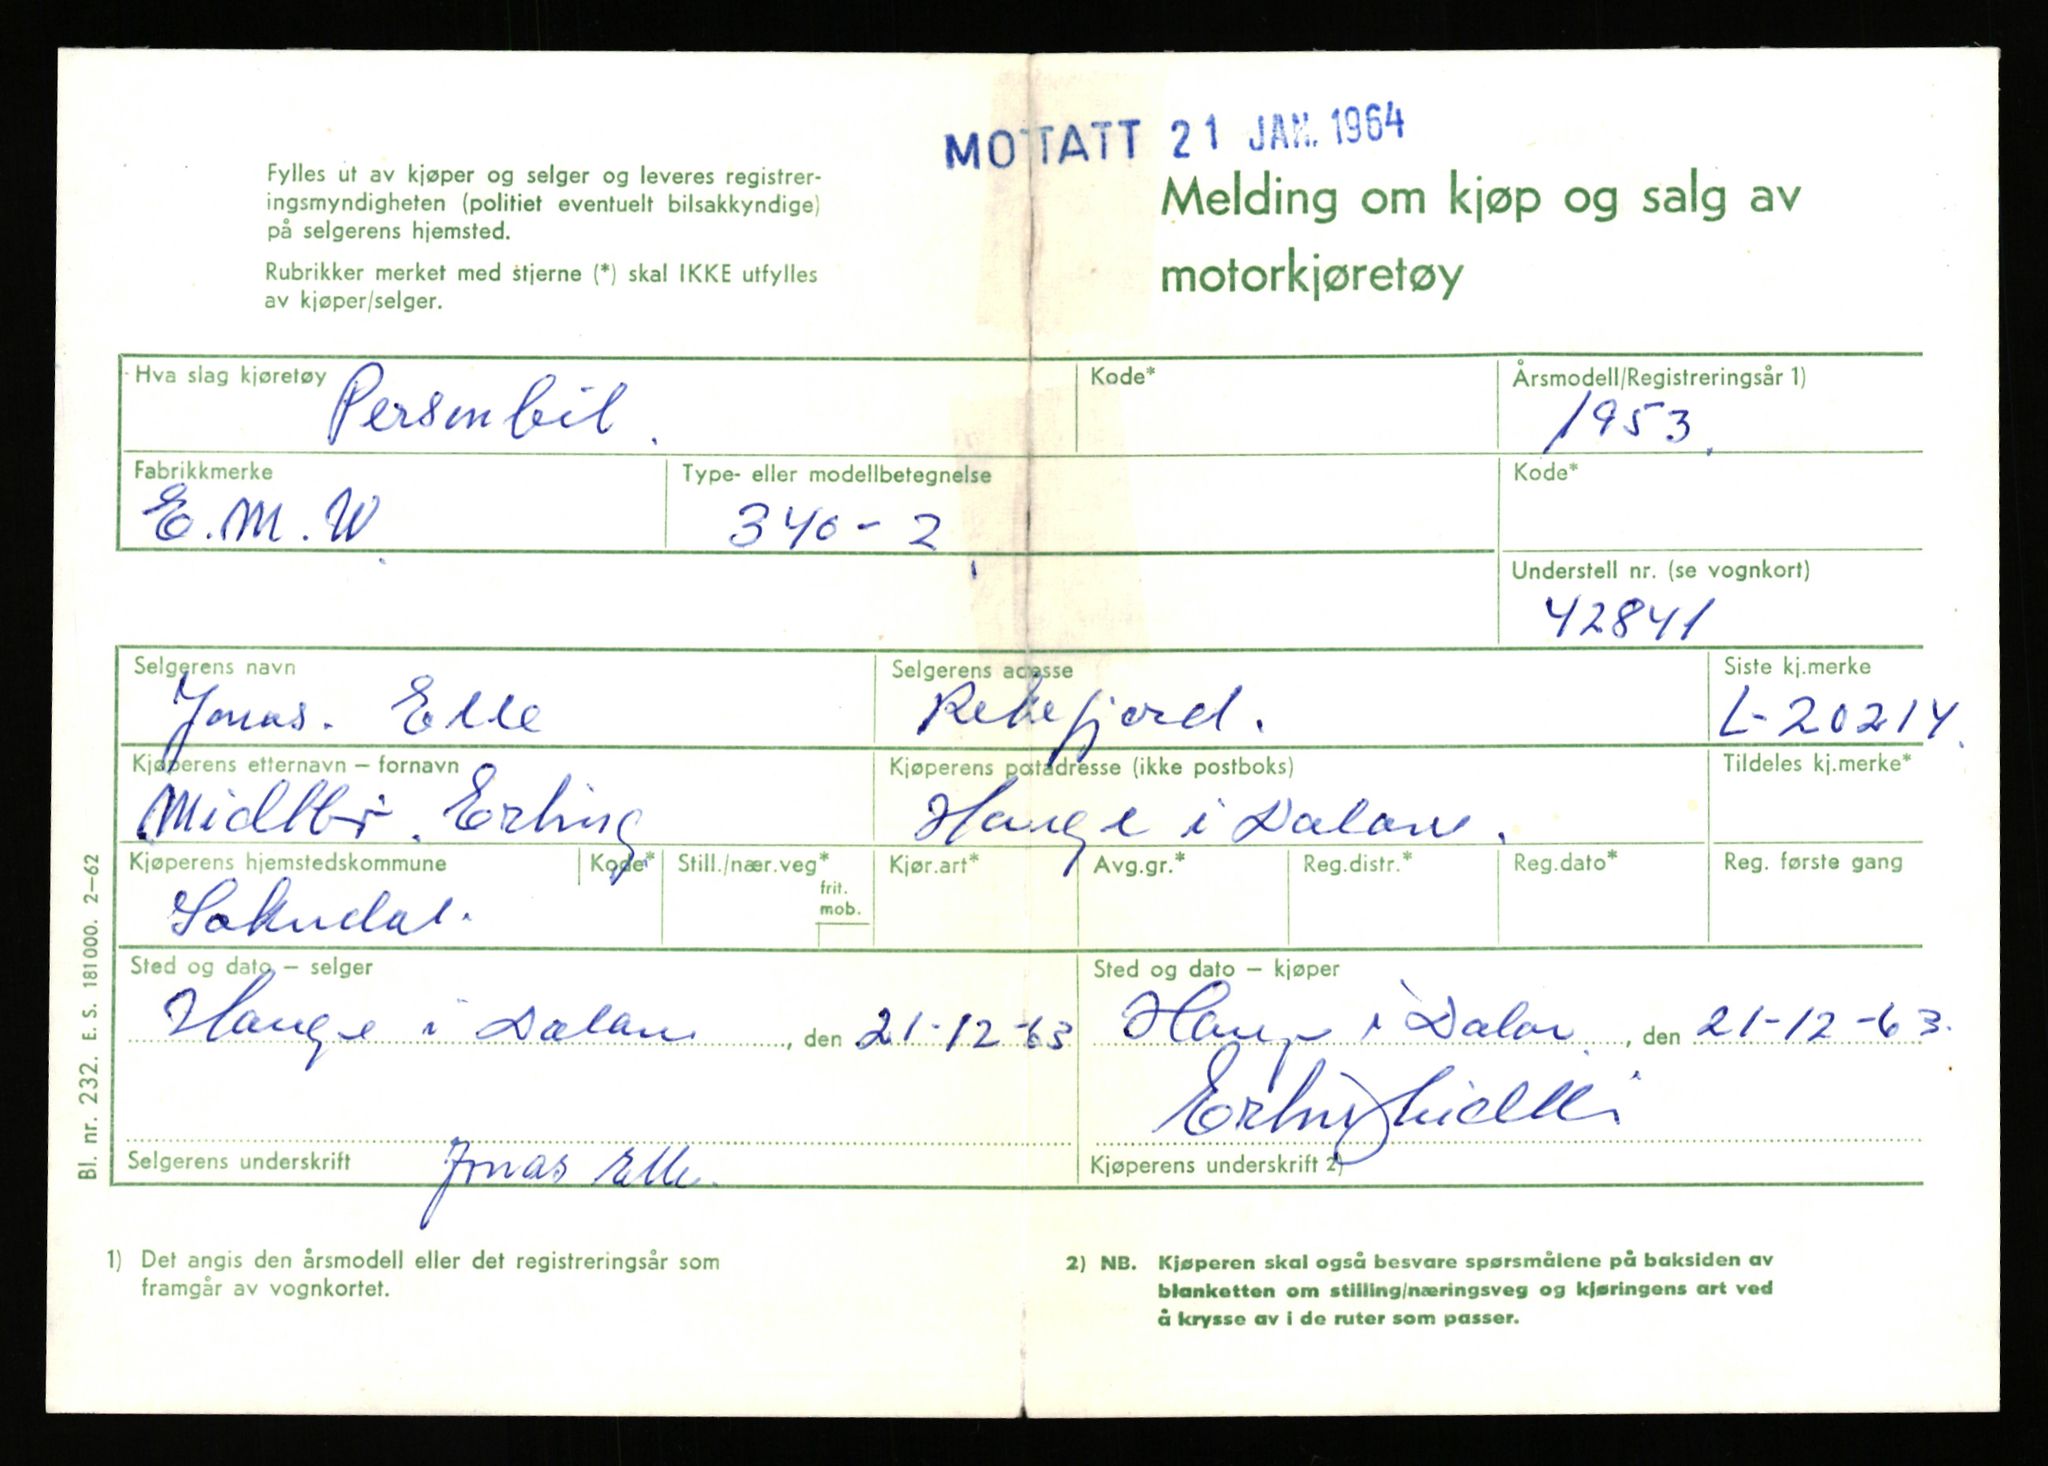 MOTTATT 21 JAN. 1964
Fylles ut av kjøper og selger og leveres registrer-
ingsmyndigheten (politiet eventuelt bilsakkyndige)
på selgerens hjemsted.
Rubrikker merket med stjerne (*) skal IKKE utfylles
av kjøper/selger.
Melding om kjøp og salg av
motorkjøretøy
Hva slag kjøretøy
Personbil.
Kode*
Årsmodell/Registreringsår 1)
1953.
Fabrikkmerke
E.M.W.
Type- eller modellbetegnelse
340-2
Kode*
Understell nr. (se vognkort)
42841
Selgerens navn
Jonas. Elle
Selgerens adresse
Rekefjord.
Siste kj.merke
L-20214.
Kjøperens etternavn – fornavn
Midtbø. Erling
Kjøperens postadresse (ikke postboks)
Hauge i Dalane.
Tildeles kj.merke*
Kjøperens hjemstedskommune
Sokndal.
Kode*
Still./nær.veg*
frit.
mob.
Kjør.art*
Avg.gr.*
Reg.distr.*
Reg.dato*
Reg. første gang
Sted og dato – selger
Hauge i Dalane, den 21-12-63
Sted og dato – kjøper
Hauge i Dalane, den 21-12-63.
Selgerens underskrift
Jonas Elle.
Erling Midtbø
Kjøperens underskrift 2)
1) Det angis den årsmodell eller det registreringsår som
framgår av vognkortet.
2) NB. Kjøperen skal også besvare spørsmålene på baksiden av
blanketten om stilling/næringsveg og kjøringens art ved
å krysse av i de ruter som passer.
Bl. nr. 232. E. S. 181000. 2–62